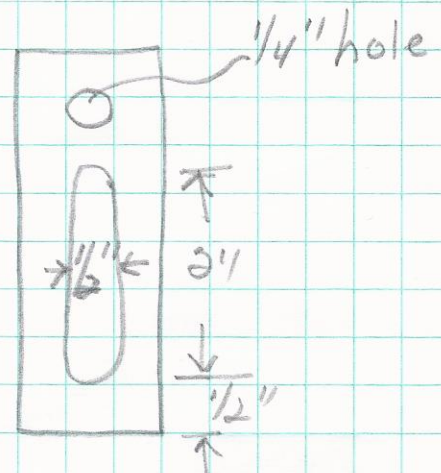 1/4" hole
1/2"
2"
1/2"